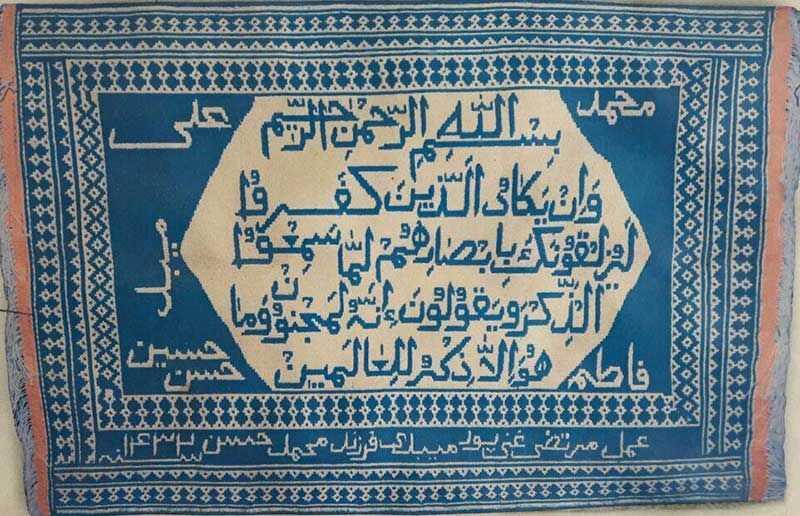 محمد علی
بِسْمِ اللّهِ الرَّحْمنِ الرَّحیمِ
وَاِنْ یَکادُ الَّذینَ کَفَرُوا
لَیُزْلِقُونَکَ بِاَبْصارِهِمْ لَمّا سَمِعُوا
الذِّکْرَ وَیَقُولُونَ اِنَّهُ لَمَجْنُونٌ وَما
هُوَ اِلّا ذِکْرٌ لِلْعالَمینَ
میبد
فاطمه
حسین
حسن
عمل مرتضی غنی پور فرزند محمد حسن